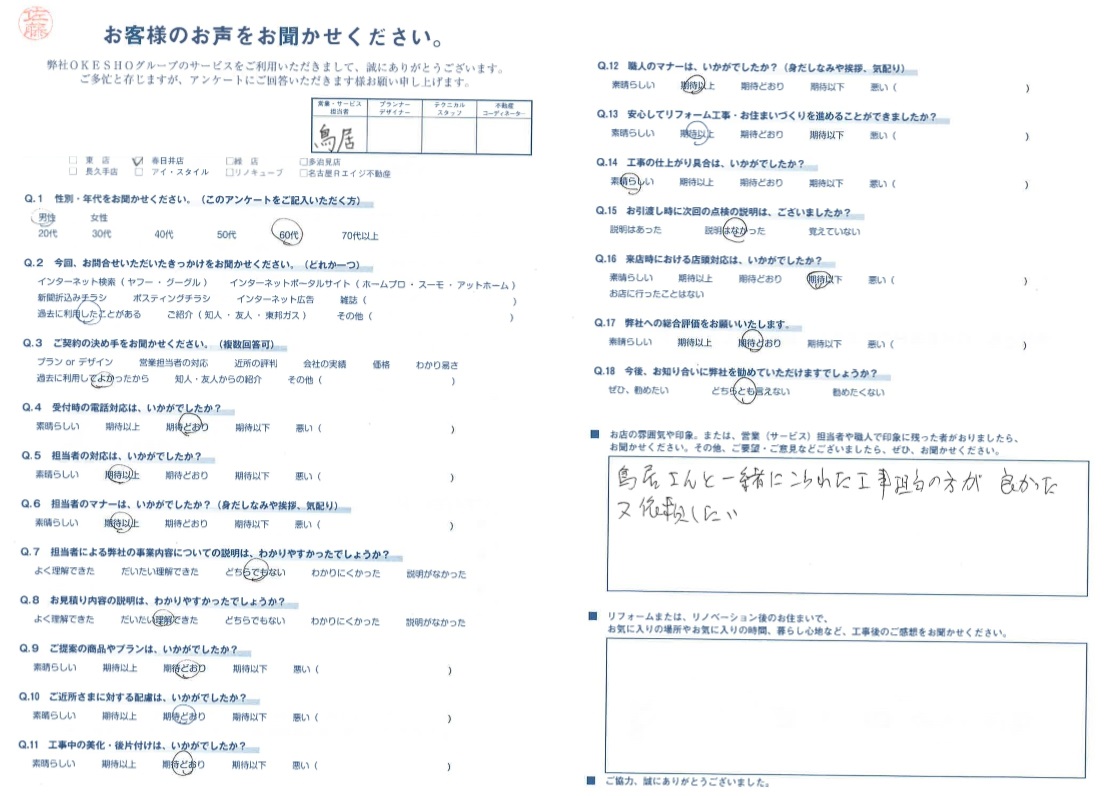 佐藤
お客様のお声をお聞かせください。
弊社OKESHOグループのサービスをご利用いただきまして、誠にありがとうございます。
ご多忙と存じますが、アンケートにご回答いただきます様お願い申し上げます。
営業・サービス担当者 プランナーデザイナー テクニカルスタッフ 不動産コーディネーター
鳥居
□ 東 店 ☑ 春日井店 □緑 店 □多治見店
□ 長久手店 □ アイ・スタイル □リノキューブ □名古屋Rエイジ不動産
Q.1 性別・年代をお聞かせください。(このアンケートをご記入いただく方)
男性 女性
20代 30代 40代 50代 60代 70代以上
Q.2 今回、お問合せいただいたきっかけをお聞かせください。(どれか一つ)
インターネット検索(ヤフー・グーグル) インターネットポータルサイト(ホームプロ・スーモ・アットホーム)
新聞折込みチラシ ポスティングチラシ インターネット広告 雑誌( )
過去に利用したことがある ご紹介(知人・友人・東邦ガス) その他( )
Q.3 ご契約の決め手をお聞かせください。(複数回答可)
プラン or デザイン 営業担当者の対応 近所の評判 会社の実績 価格 わかり易さ
過去に利用してよかったから 知人・友人からの紹介 その他( )
Q.4 受付時の電話対応は、いかがでしたか?
素晴らしい 期待以上 期待どおり 期待以下 悪い( )
Q.5 担当者の対応は、いかがでしたか?
素晴らしい 期待以上 期待どおり 期待以下 悪い( )
Q.6 担当者のマナーは、いかがでしたか?(身だしなみや挨拶、気配り)
素晴らしい 期待以上 期待どおり 期待以下 悪い( )
Q.7 担当者による弊社の事業内容についての説明は、わかりやすかったでしょうか?
よく理解できた だいたい理解できた どちらでもない わかりにくかった 説明がなかった
Q.8 お見積り内容の説明は、わかりやすかったでしょうか?
よく理解できた だいたい理解できた どちらでもない わかりにくかった 説明がなかった
Q.9 ご提案の商品やプランは、いかがでしたか?
素晴らしい 期待以上 期待どおり 期待以下 悪い( )
Q.10 ご近所さまに対する配慮は、いかがでしたか?
素晴らしい 期待以上 期待どおり 期待以下 悪い( )
Q.11 工事中の美化・後片付けは、いかがでしたか?
素晴らしい 期待以上 期待どおり 期待以下 悪い( )
Q.12 職人のマナーは、いかがでしたか?(身だしなみや挨拶、気配り)
素晴らしい 期待以上 期待どおり 期待以下 悪い( )
Q.13 安心してリフォーム工事・お住まいづくりを進めることができましたか?
素晴らしい 期待以上 期待どおり 期待以下 悪い( )
Q.14 工事の仕上がり具合は、いかがでしたか?
素晴らしい 期待以上 期待どおり 期待以下 悪い( )
Q.15 お引渡し時に次回の点検の説明は、ございましたか?
説明はあった 説明はなかった 覚えていない
Q.16 来店時における店頭対応は、いかがでしたか?
素晴らしい 期待以上 期待どおり 期待以下 悪い( )
お店に行ったことはない
Q.17 弊社への総合評価をお願いいたします。
素晴らしい 期待以上 期待どおり 期待以下 悪い( )
Q.18 今後、お知り合いに弊社を勧めていただけますでしょうか?
ぜひ、勧めたい どちらとも言えない 勧めたくない
■ お店の雰囲気や印象。または、営業(サービス)担当者や職人で印象に残った者がおりましたら、
お聞かせください。その他、ご要望・ご意見などございましたら、ぜひ、お聞かせください。
鳥居さんと一緒にこられた工事担当の方が 良かった
又依頼したい
■ リフォームまたは、リノベーション後のお住まいで、
お気に入りの場所やお気に入りの時間、暮らし心地など、工事後のご感想をお聞かせください。
■ ご協力、誠にありがとうございました。